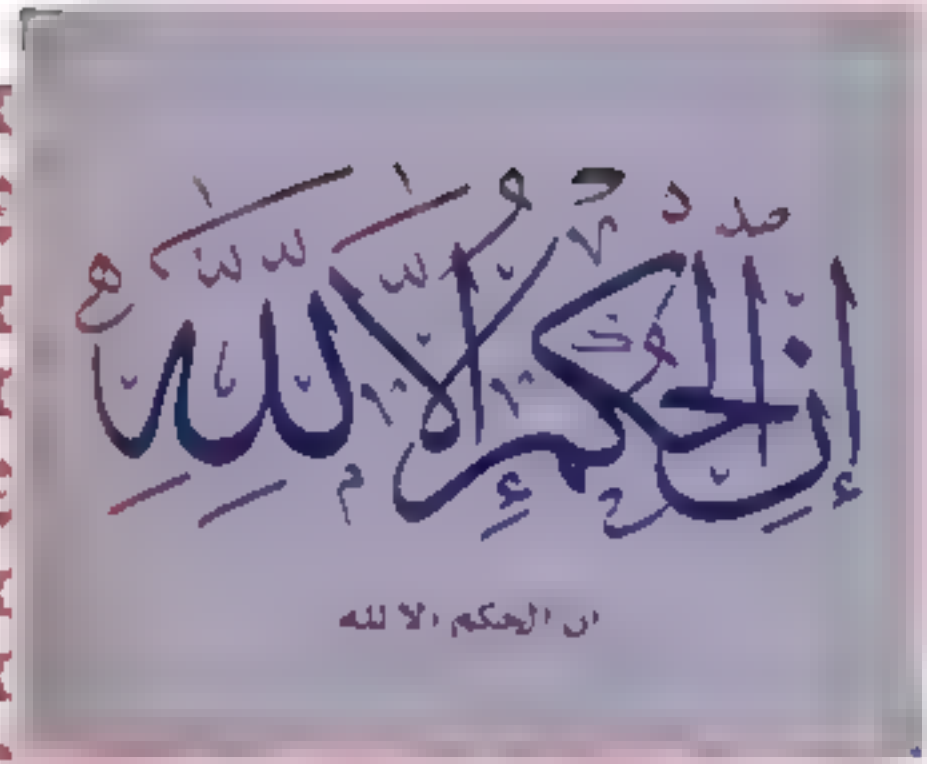 إِنِ الْحُكْمُ إِلَّا لِلَّهِ
ان الحكم الا لله